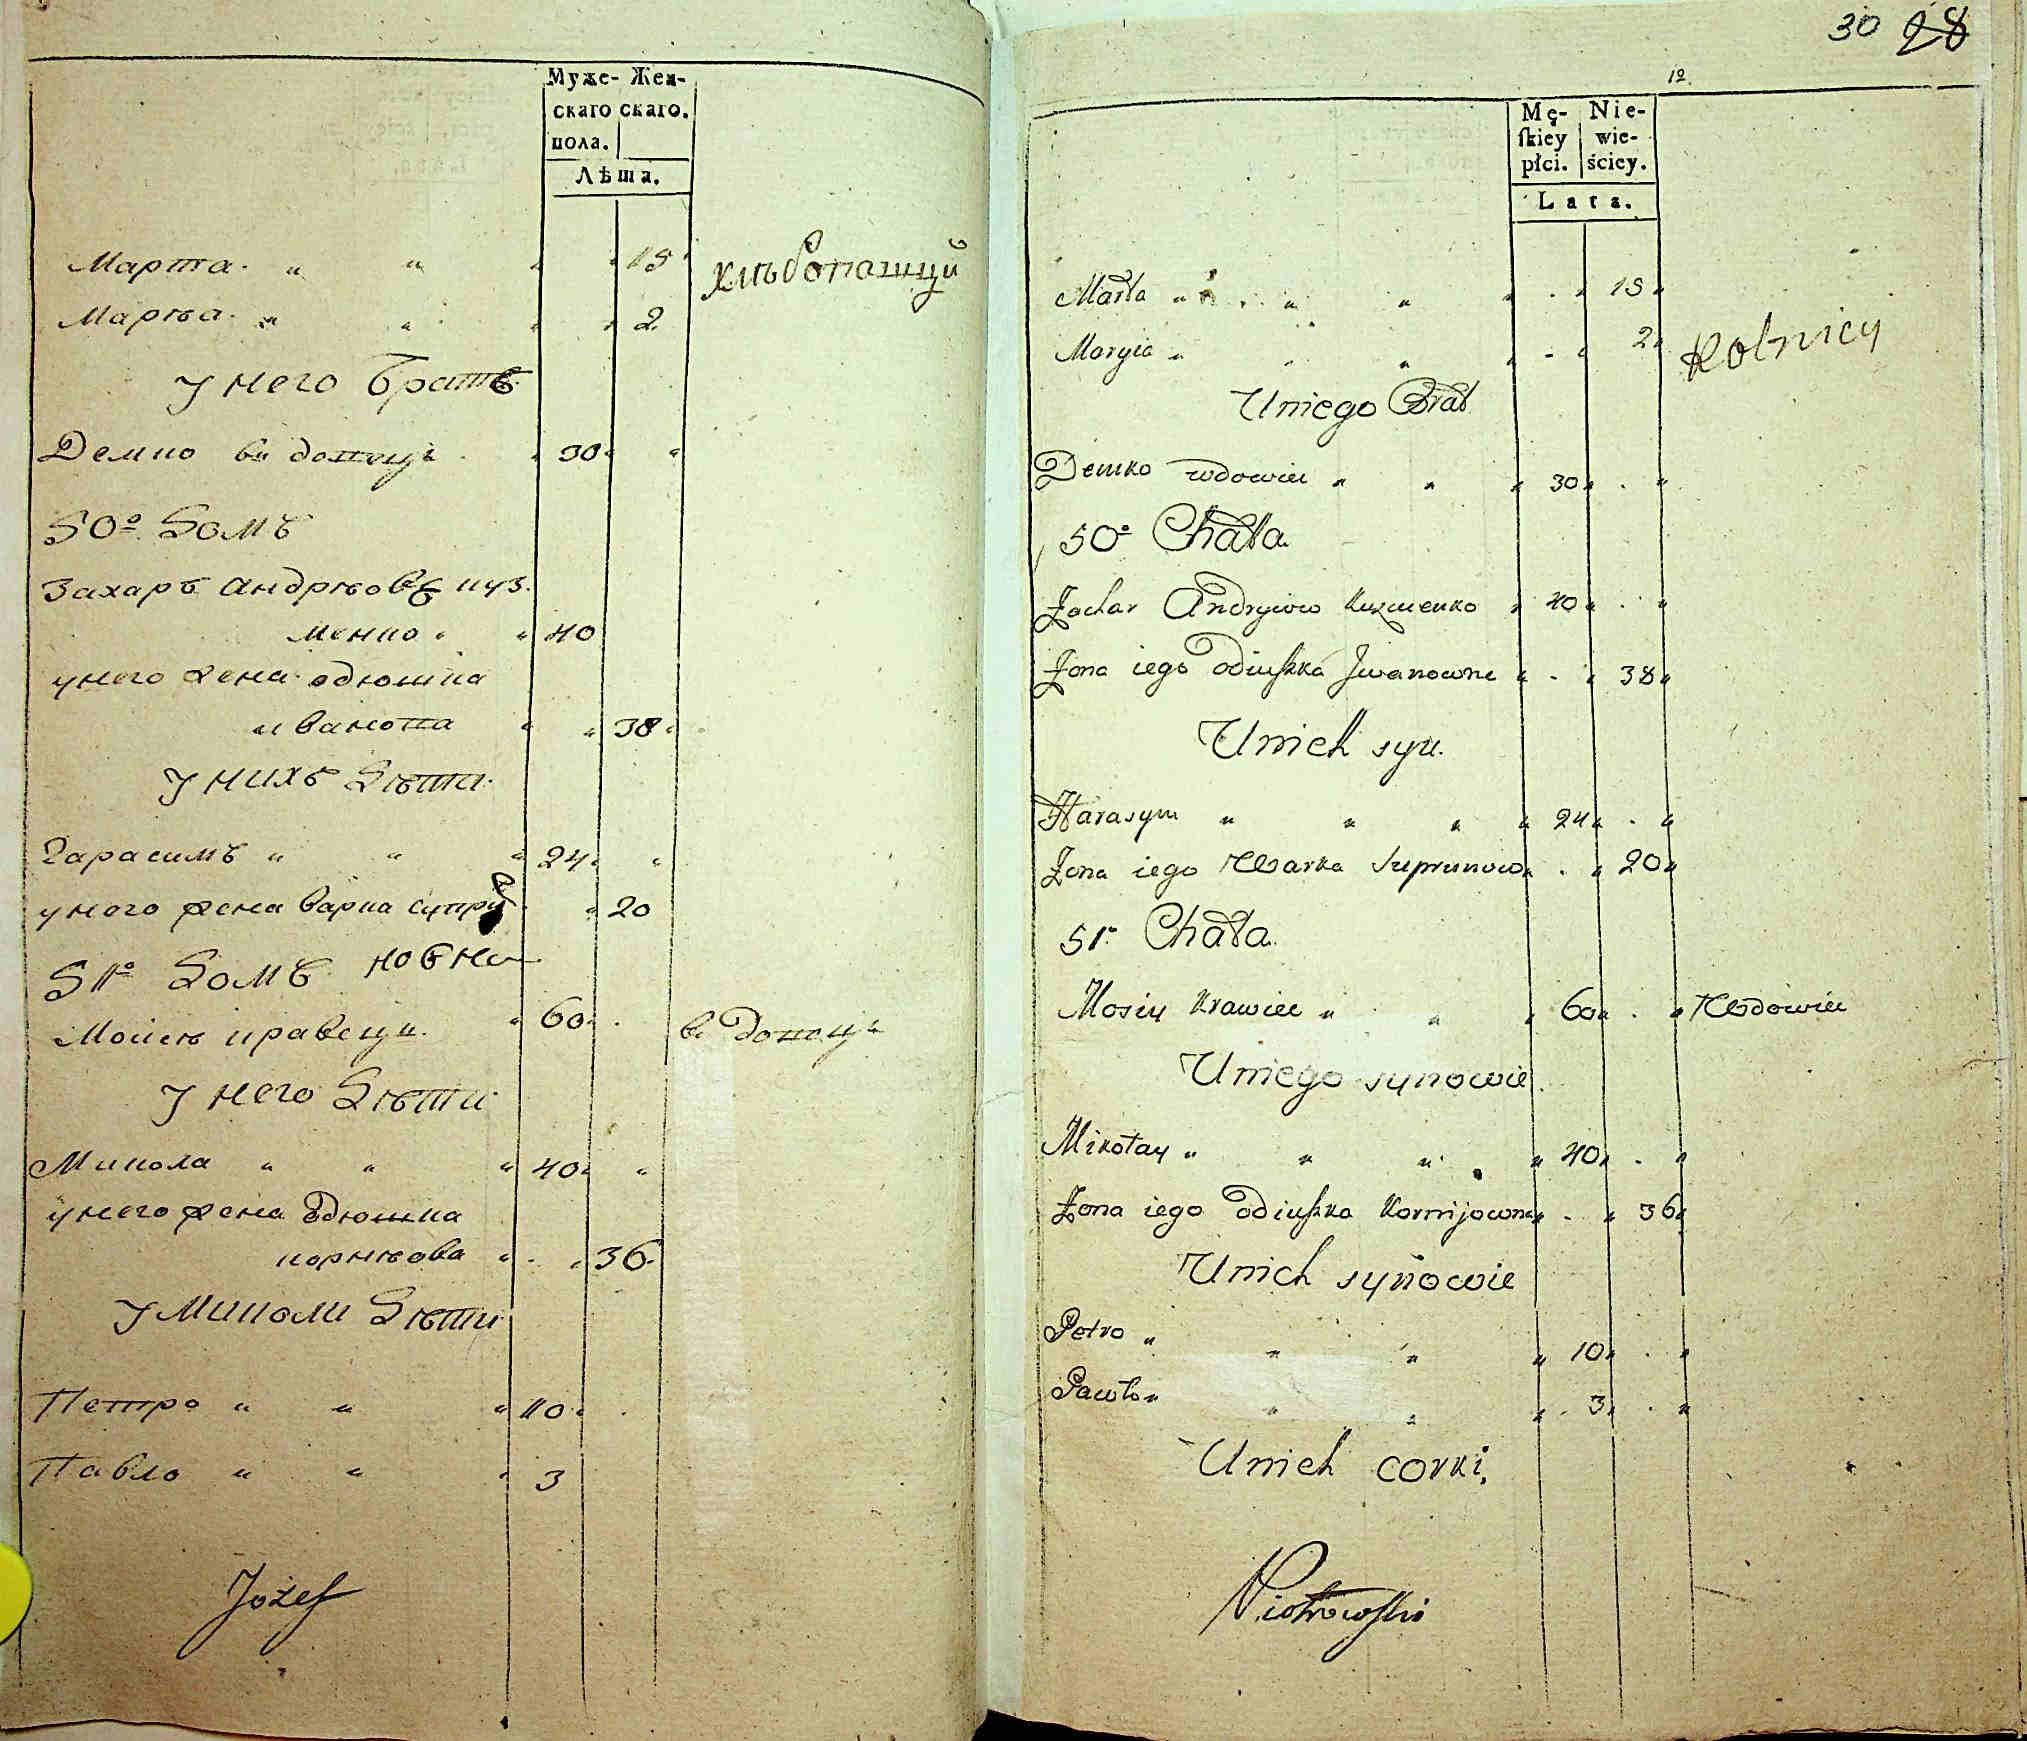 Муже- Жен-
скаго скаго.
пола.
Лѣта.
Марта " " " " 15
Марѣа " " " " 2
хлѣбопашцы
у него братъ
Демко вдовецъ " 30 "
50º Домъ
Захаръ Андрѣовъ куз.
менко " " 40
у него жена одюшка
ивановна " " 38
у нихъ Дѣти
Гарасимъ " " " 24 "
у него жена варка супру
новна " 20
51º Домъ
Мойсѣ кравецъ " 60
вдовецъ
у него Дѣти
Микола " " " 40 "
у него жена Одюшка
корнѣова " " 36
у Миколи Дѣти
Петро " " " 10
Павло " " " 3
Jozef
30 28
12
Mę- Nie-
skiey wie-
płci. ściey.
Lata.
Marta " " " " 15 "
Maryia " " " " 2 "
Rolnicy
U niego Brat
Demko wdowiec " " " 30 " "
50º Chata
Zachar Andryiow Kuzmenko " 40 " "
Żona iego Odiuszka Iwanowna " " 38 "
U nich syn.
Harasym " " " " 24 " "
Żona iego Warka Suprunow " " 20 "
51º Chata
Mosiy Krawiec " " " 60 " " Wdowiec
U niego synowie
Mikołay " " " " 40 " "
Żona iego Odiuszka Kornijowna " " 36 "
U nich synowie
Petro " " " " 10 " "
Pawło " " " " 3 " "
U nich corki.
Piotrowski